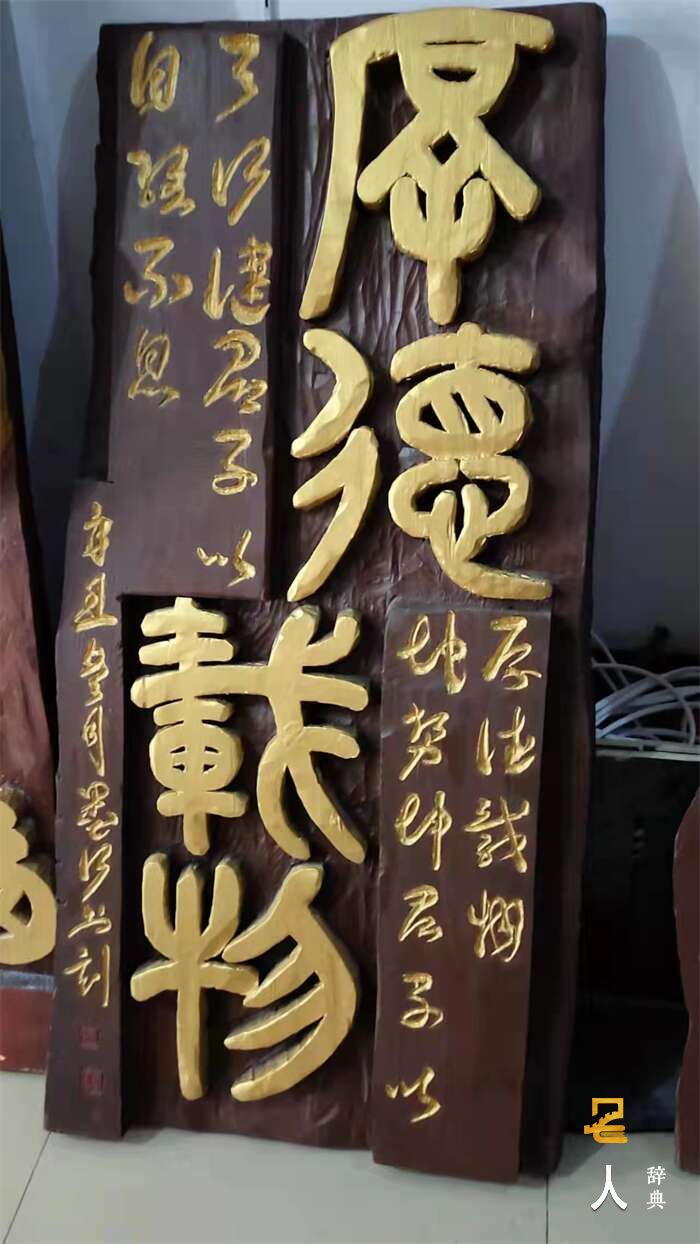 厚德
載物
天行健君子以
自强不息
地势坤君子以
厚德載物
辛丑 月 書刻
名人
辞典